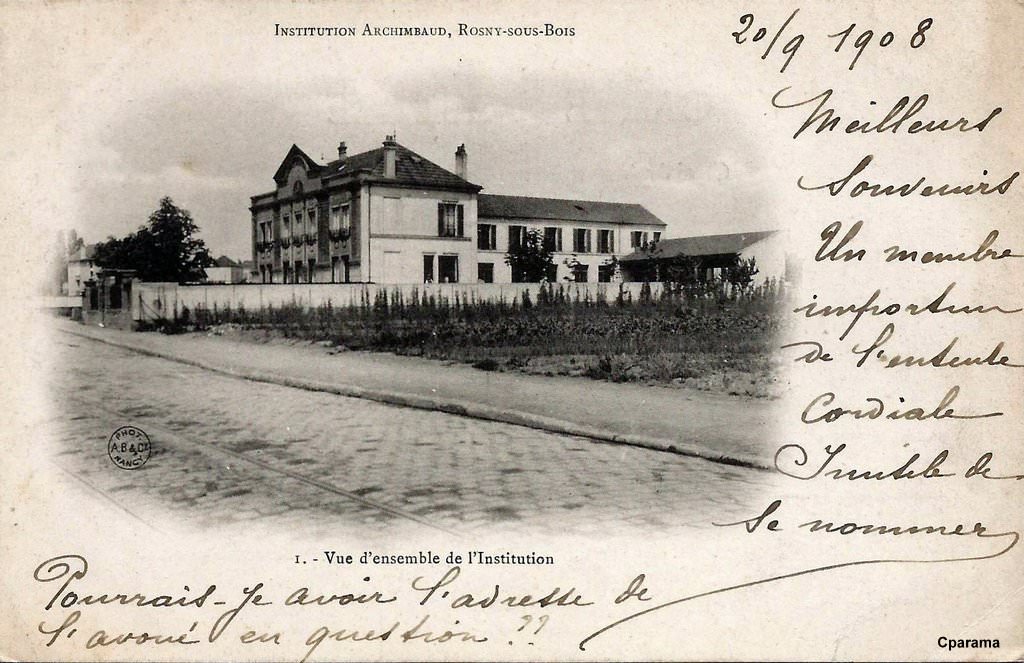 INSTITUTION ARCHIMBAUD, ROSNY-SOUS-BOIS
20/9 1908
Meilleurs
Souvenirs
Un membre
importun
de l'entente
Cordiale
Inutile de
se nommer
PHOT.
A.B & Cie
NANCY
1. - Vue d'ensemble de l'Institution
Pourrais-je avoir l'adresse de
l'avoué en question ??
Cparama